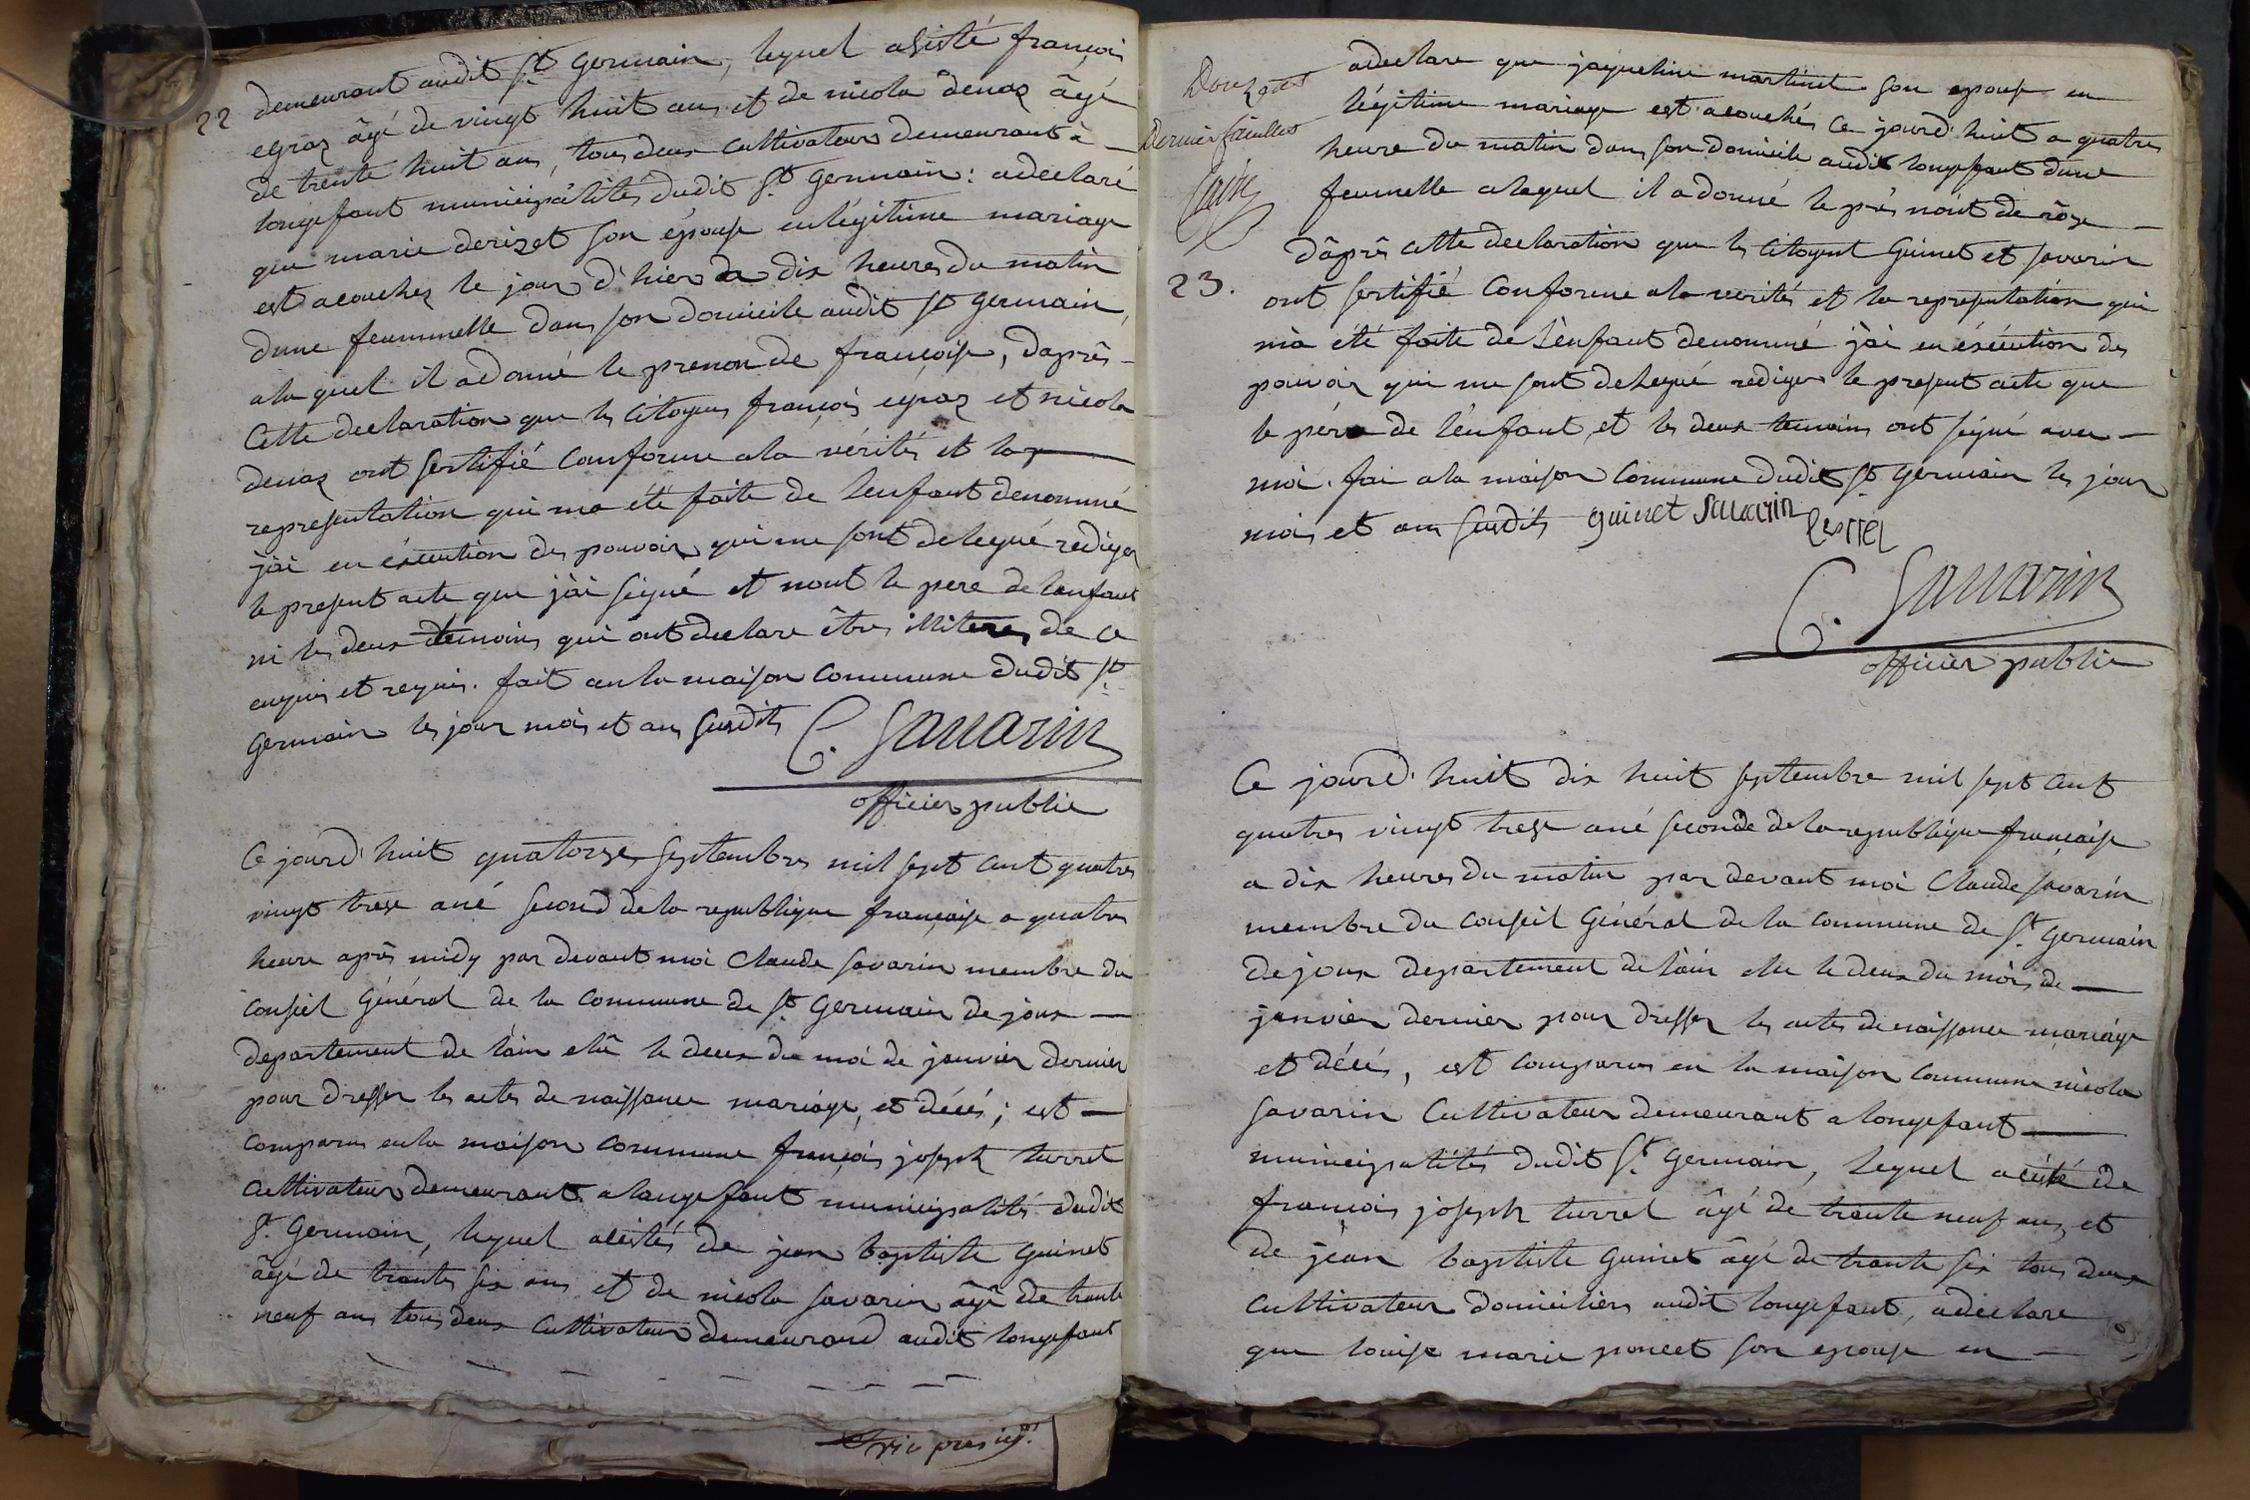 22
demeurant audit St Germain, lequel asisté françois
egraz âgé de vingt huit ans et de nicola dénaz âgé
de trente huit ans, tous deux cultivateur demeurant à
longefant municipalités dudit St Germain : adeclaré
que marie derizet son épouse en légitime mariage
est acouchez le jour d'hier a dix heures du matin
dune feummelle dans son domicile audit St Germain,
ala quel il adonné le prenon de françoise, daprès
Cette declaration que les Citoyens françois egraz et nicola
denaz ont sertifié Conforme ala vérités et la
representation qui ma été faite de lenfant denommé
jâi en éxécution des pouvoir qui me sont delegué rediger
le present acte que jâi signé et nont le pere de lenfant
ni les deux témoins qui ont declare être illiteres de ce
enquis et requis. fait en la maison Commune dudit St
Germain les jour mois et an susdits C. Savarin
officier public
Ce jourd'huit quatorze septembre mil sept cent quatre
vingt treze ané second de la republique française a quatre
heure après midy par devant moi Claude Savarin membre du
Conseil Général de la Commune de St Germain de joux
departement de l'ain elû le deux du moi de janvier dernier
pour dresser les actes de naissance mariage, et décés ; est
Comparus en la maison Commune françois joseph turrel
Cultivateur demeurant a longefant municipalités dudit
St. Germain, lequel acistés de jean baptiste Guinet
âgé de trante six ans et de nicola savarin âgé de trante
neuf ans tous deux Cultivateur demeurand audit longefant
Douze
Dernier feuillet
23.
adeclare que jaqueline martinet son epouse en
légitime mariage est acouchés ce jourd'huit a quatre
heure du matin dans son domicile audit longefant dune
feumelle alaquel il adonné le pré nont de rôze
Dâprès cette declaration que les Citoyent Guinet et savarin
ont sertifié Conforme ala verités et la representation qui
mâ été faite de lênfant denommé jâi en éxécution des
pouvoir qui me sont delegué rediger le present acte que
le pére de lénfant et les deux temoins ont signé avec
moi. fai ala maison Commune dudit St Germain les jour
mois et an susdits guinet Savarin
C. Savarin
officier public
Ce jourd'huit dix huit septembre mil sept cent
quatres vingt treze ané seconde de la republique française
a dix heures du matin par devant moi Claude savarin
membre du Conseil Général de la Commune de St. Germain
de joux departement de lâin elu le deux du mois de
janvier dernier pour dresser les actes de naissance mariage
et décés, est Comparus en la maison Commune nicola
savarin Cultivateur demeurant a longefant
municipalités dudit St. Germain, lequel acisté de
françois joseph turrel âgé de trante neuf ans, et
de jéan baptiste guinet âgé de trante six tous deux
Cultivateur domicilier audit longefant, adeclare
que louise marie poncet son epouse en